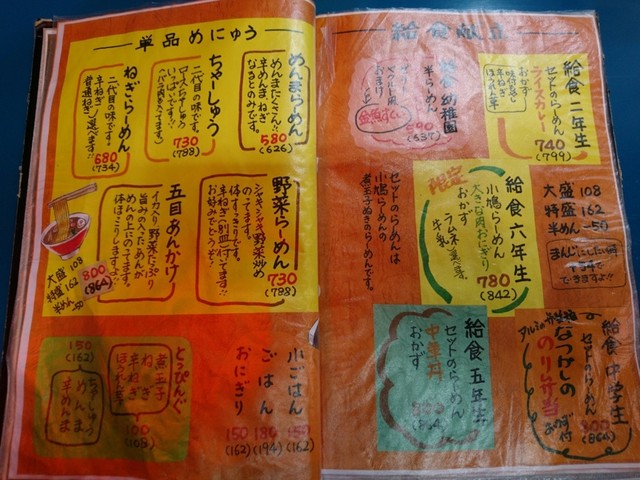 単品めにゅう
めんまらーめん
めんまたくさん!!
半めんまねぎ
なるとのみです。
580
(626)
ちゃーしゅう
二代目の味です。
ロースちゃーしゅう
いっぱいです!!
730
(788)
ねぎらーめん
二代目の味です。
辛ねぎ
普通ねぎ
選べます!!
680
(734)
野菜らーめん
シャキシャキ野菜炒め
のってます。
体すっきりです。
辛ねぎ別皿付てます!!
お好みでどうぞ!
730
(788)
五目あんかけ
イカ入り野菜たっぷり
旨みの入ったあんが
めんの上にのってます。
体ほっこりしますよ!!
800
(864)
大盛 108
特盛 162
半めん -50
小ごはん
150
(162)
ごはん
180
(194)
おにぎり
150
(162)
とっぴんぐ
煮玉子
ねぎ
辛ねぎ
ほうれん草
100
(108)
ちゃーしゅう
めんま
半めんま
150
(162)
給食献立
給食二年生
セットのらーめん
ライスカレー
おかず
味付玉子
辛ねぎ
ほうれん草
740
(799)
給食幼稚園
半らーめん
おまけ
590
(637)
大盛 108
特盛 162
半めん -50
給食六年生
小鳩らーめん
大きな肉おにぎり
おかず
ラムネ
牛乳
780
(842)
限定
セットのらーめんは
小鳩らーめんの
煮玉子ぬきのらーめんです。
給食中学生
セットのらーめん
なつかしの
のり弁当
おかず付
800
(864)
給食五年生
セットのらーめん
中華丼
おかず
800
(864)